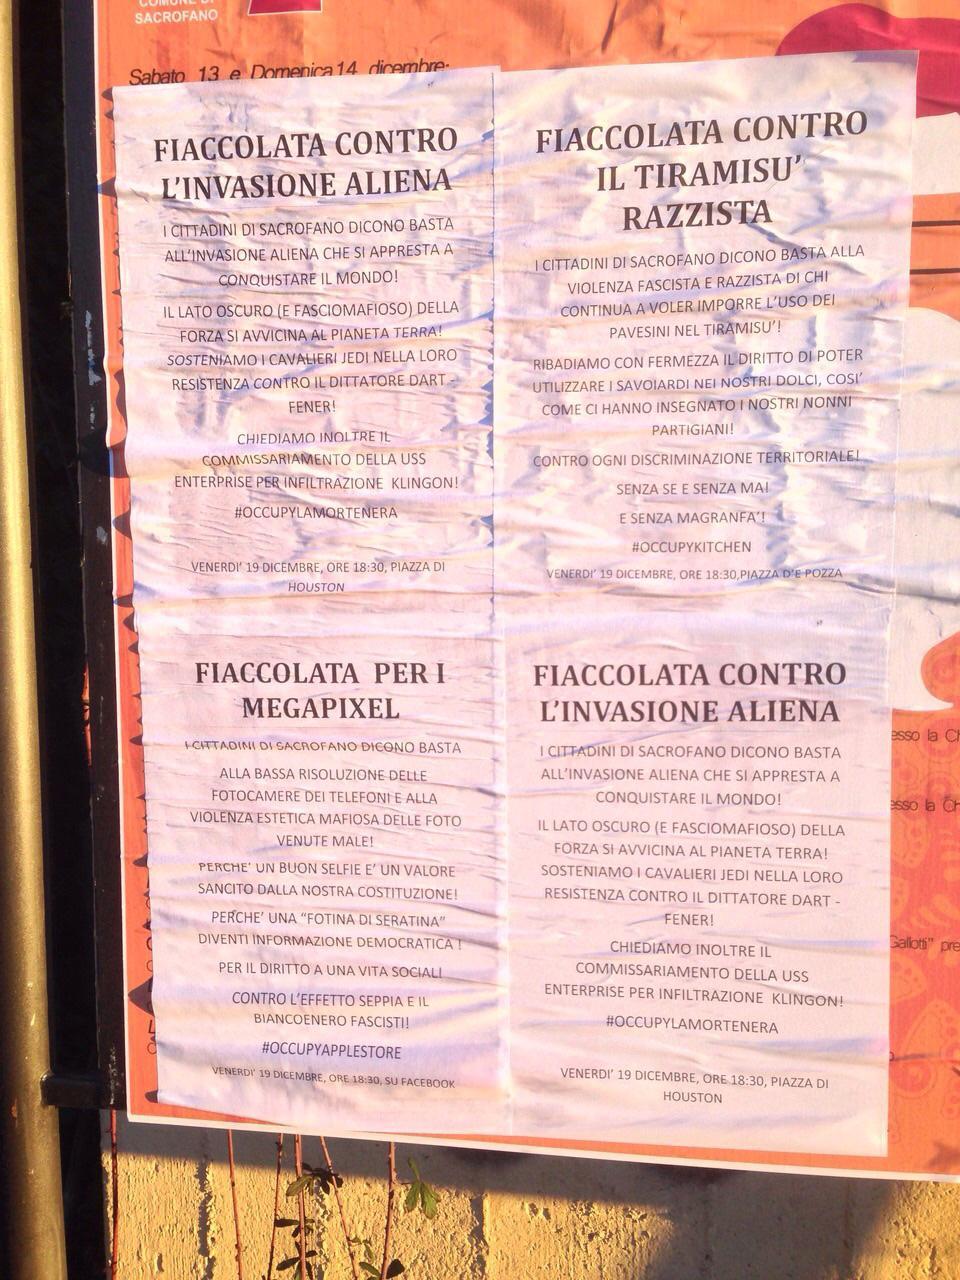 COMUNE DI
SACROFANO
Sabato 13 e Domenica 14 dicembre:
FIACCOLATA CONTRO
L'INVASIONE ALIENA
I CITTADINI DI SACROFANO DICONO BASTA
ALL'INVASIONE ALIENA CHE SI APPRESTA A
CONQUISTARE IL MONDO!
IL LATO OSCURO (E FASCIOMAFIOSO) DELLA
FORZA SI AVVICINA AL PIANETA TERRA!
SOSTENIAMO I CAVALIERI JEDI NELLA LORO
RESISTENZA CONTRO IL DITTATORE DART -
FENER!
CHIEDIAMO INOLTRE IL
COMMISSARIAMENTO DELLA USS
ENTERPRISE PER INFILTRAZIONE KLINGON!
#OCCUPYLAMORTENERA
VENERDI' 19 DICEMBRE, ORE 18:30, PIAZZA DI
HOUSTON
FIACCOLATA CONTRO
IL TIRAMISU'
RAZZISTA
I CITTADINI DI SACROFANO DICONO BASTA ALLA
VIOLENZA FASCISTA E RAZZISTA DI CHI
CONTINUA A VOLER IMPORRE L'USO DEI
PAVESINI NEL TIRAMISU'!
RIBADIAMO CON FERMEZZA IL DIRITTO DI POTER
UTILIZZARE I SAVOIARDI NEI NOSTRI DOLCI, COSI'
COME CI HANNO INSEGNATO I NOSTRI NONNI
PARTIGIANI!
CONTRO OGNI DISCRIMINAZIONE TERRITORIALE!
SENZA SE E SENZA MA!
E SENZA MAGRANFA'!
#OCCUPYKITCHEN
VENERDI' 19 DICEMBRE, ORE 18:30,PIAZZA D'E POZZA
FIACCOLATA PER I
MEGAPIXEL
I CITTADINI DI SACROFANO DICONO BASTA
ALLA BASSA RISOLUZIONE DELLE
FOTOCAMERE DEI TELEFONI E ALLA
VIOLENZA ESTETICA MAFIOSA DELLE FOTO
VENUTE MALE!
PERCHE' UN BUON SELFIE E' UN VALORE
SANCITO DALLA NOSTRA COSTITUZIONE!
PERCHE' UNA "FOTINA DI SERATINA"
DIVENTI INFORMAZIONE DEMOCRATICA !
PER IL DIRITTO A UNA VITA SOCIALI
CONTRO L'EFFETTO SEPPIA E IL
BIANCOENERO FASCISTI!
#OCCUPYAPPLESTORE
VENERDI' 19 DICEMBRE, ORE 18:30, SU FACEBOOK
FIACCOLATA CONTRO
L'INVASIONE ALIENA
I CITTADINI DI SACROFANO DICONO BASTA
ALL'INVASIONE ALIENA CHE SI APPRESTA A
CONQUISTARE IL MONDO!
IL LATO OSCURO (E FASCIOMAFIOSO) DELLA
FORZA SI AVVICINA AL PIANETA TERRA!
SOSTENIAMO I CAVALIERI JEDI NELLA LORO
RESISTENZA CONTRO IL DITTATORE DART -
FENER!
CHIEDIAMO INOLTRE IL
COMMISSARIAMENTO DELLA USS
ENTERPRISE PER INFILTRAZIONE KLINGON!
#OCCUPYLAMORTENERA
VENERDI' 19 DICEMBRE, ORE 18:30, PIAZZA DI
HOUSTON
esso la Ch
esso la Ch
Gallotti" pre